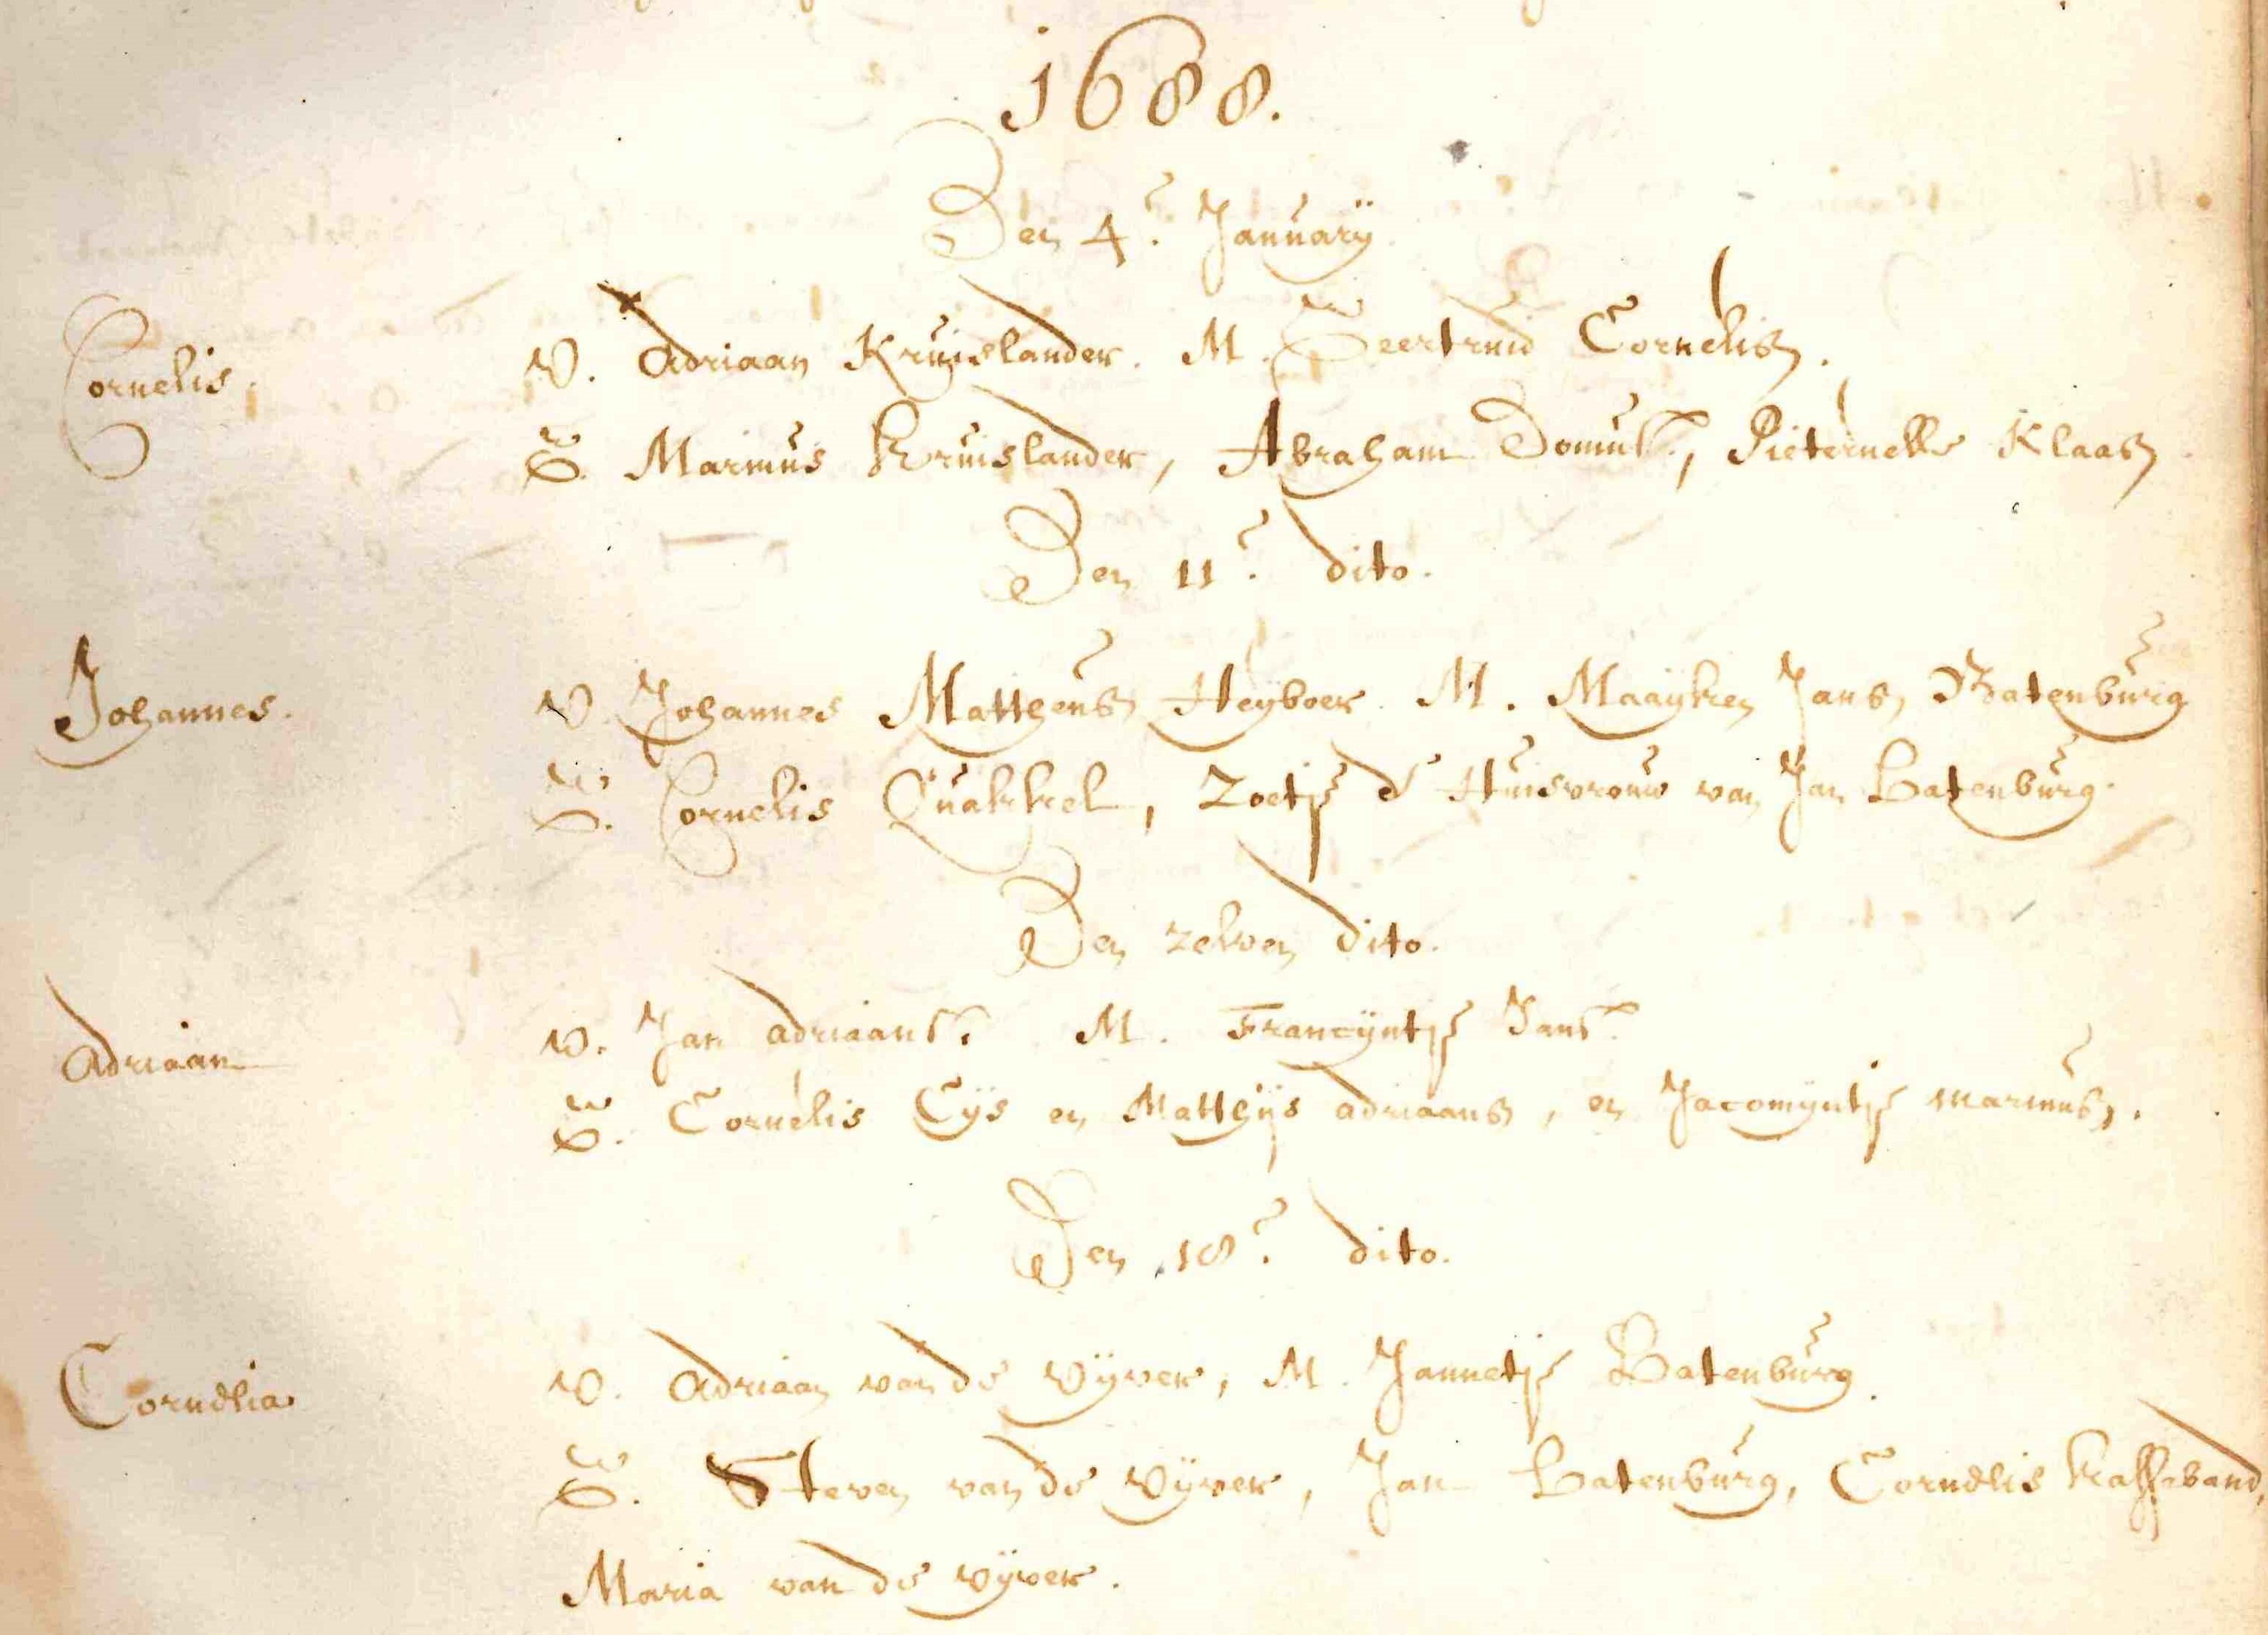 1688.
Den 4.e Januarÿ
Cornelis. V. Adriaan Kruislander. M. Geertruid Cornelisz.
G. Marinus Kruislander, Abraham Domus.e, Pieternelle Klaasz
Den 11.e dito.
Johannes. V. Johannes Mattheusz Heyboer. M. Maaÿken Jansz Batenburg
G. Cornelis Quakkel, Zoetje d' Huisvrouw van Jan Batenburg.
Den zelven dito.
Adriaan V. Jan Adriaans.e M. Francÿntje Jans.e
G. Cornelis Cÿs en Matthÿs Adriaansz, en Jacomÿntje Marinusz.
Den 18.e dito.
Cornelia V. Adriaan van de Vÿver, M. Jannetje Batenburg.
G. Steven van de Vÿver, Jan Batenburg, Cornelis Kasseband,
Maria van de Vÿver.